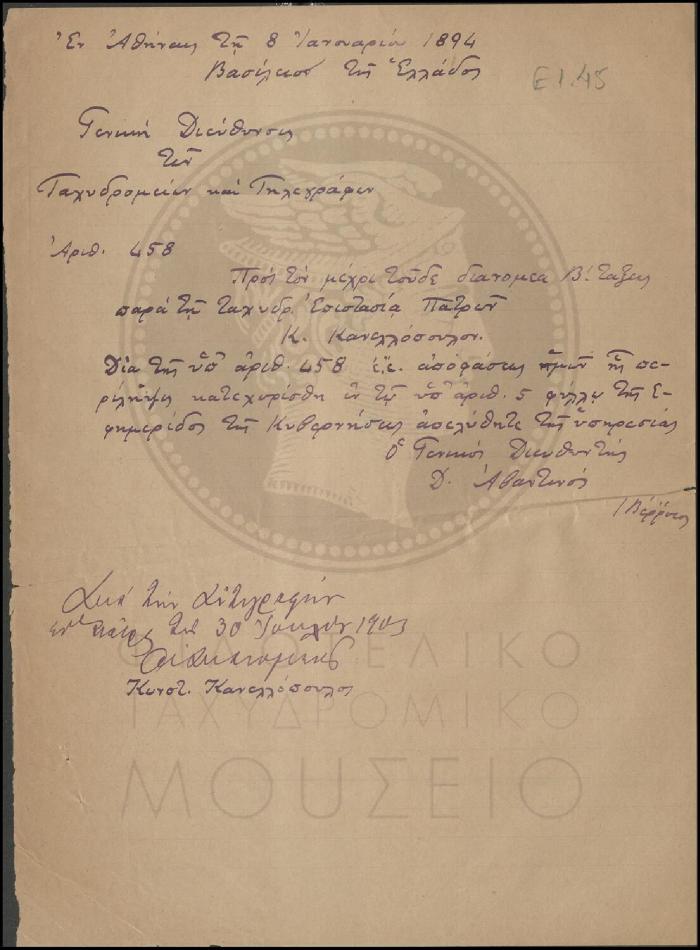 Ἐν Ἀθήναις τῇ 8 Ἰανουαρίου 1894
Βασίλειον τῆς Ἑλλάδος
E1.45
Γενικὴ Διεύθυνσις
τῶν
Ταχυδρομείων καὶ Τηλεγράφων
Ἀριθ. 458
Πρὸς τὸν μέχρι τοῦδε διανομέα Β! τάξεως
παρὰ τῇ ταχυδρ. Ἐπιστασίᾳ Πατρῶν
Κ. Κανελλόπουλον.
Διὰ τῆς ὑπ' ἀριθ. 458 ἀποφάσεως ἡμῶν ἧς πε-
ρίληψις κατεχωρίσθη ἐν τῷ ὑπ' ἀριθ. 5 φύλλῳ τῆς Ἐ-
φημερίδος τῆς Κυβερνήσεως ἀπελύθητε τῆς ὑπηρεσίας
ὁ Γενικὸς Διευθυντὴς
Δ.
διὰ τὴν ἀντιγραφὴν
30 1903
Κωνστ. Κανελλόπουλος
ΦΙΛΟΤΕΛΙΚΟ
ΤΑΧΥΔΡΟΜΙΚΟ
ΜΟΥΣΕΙΟ